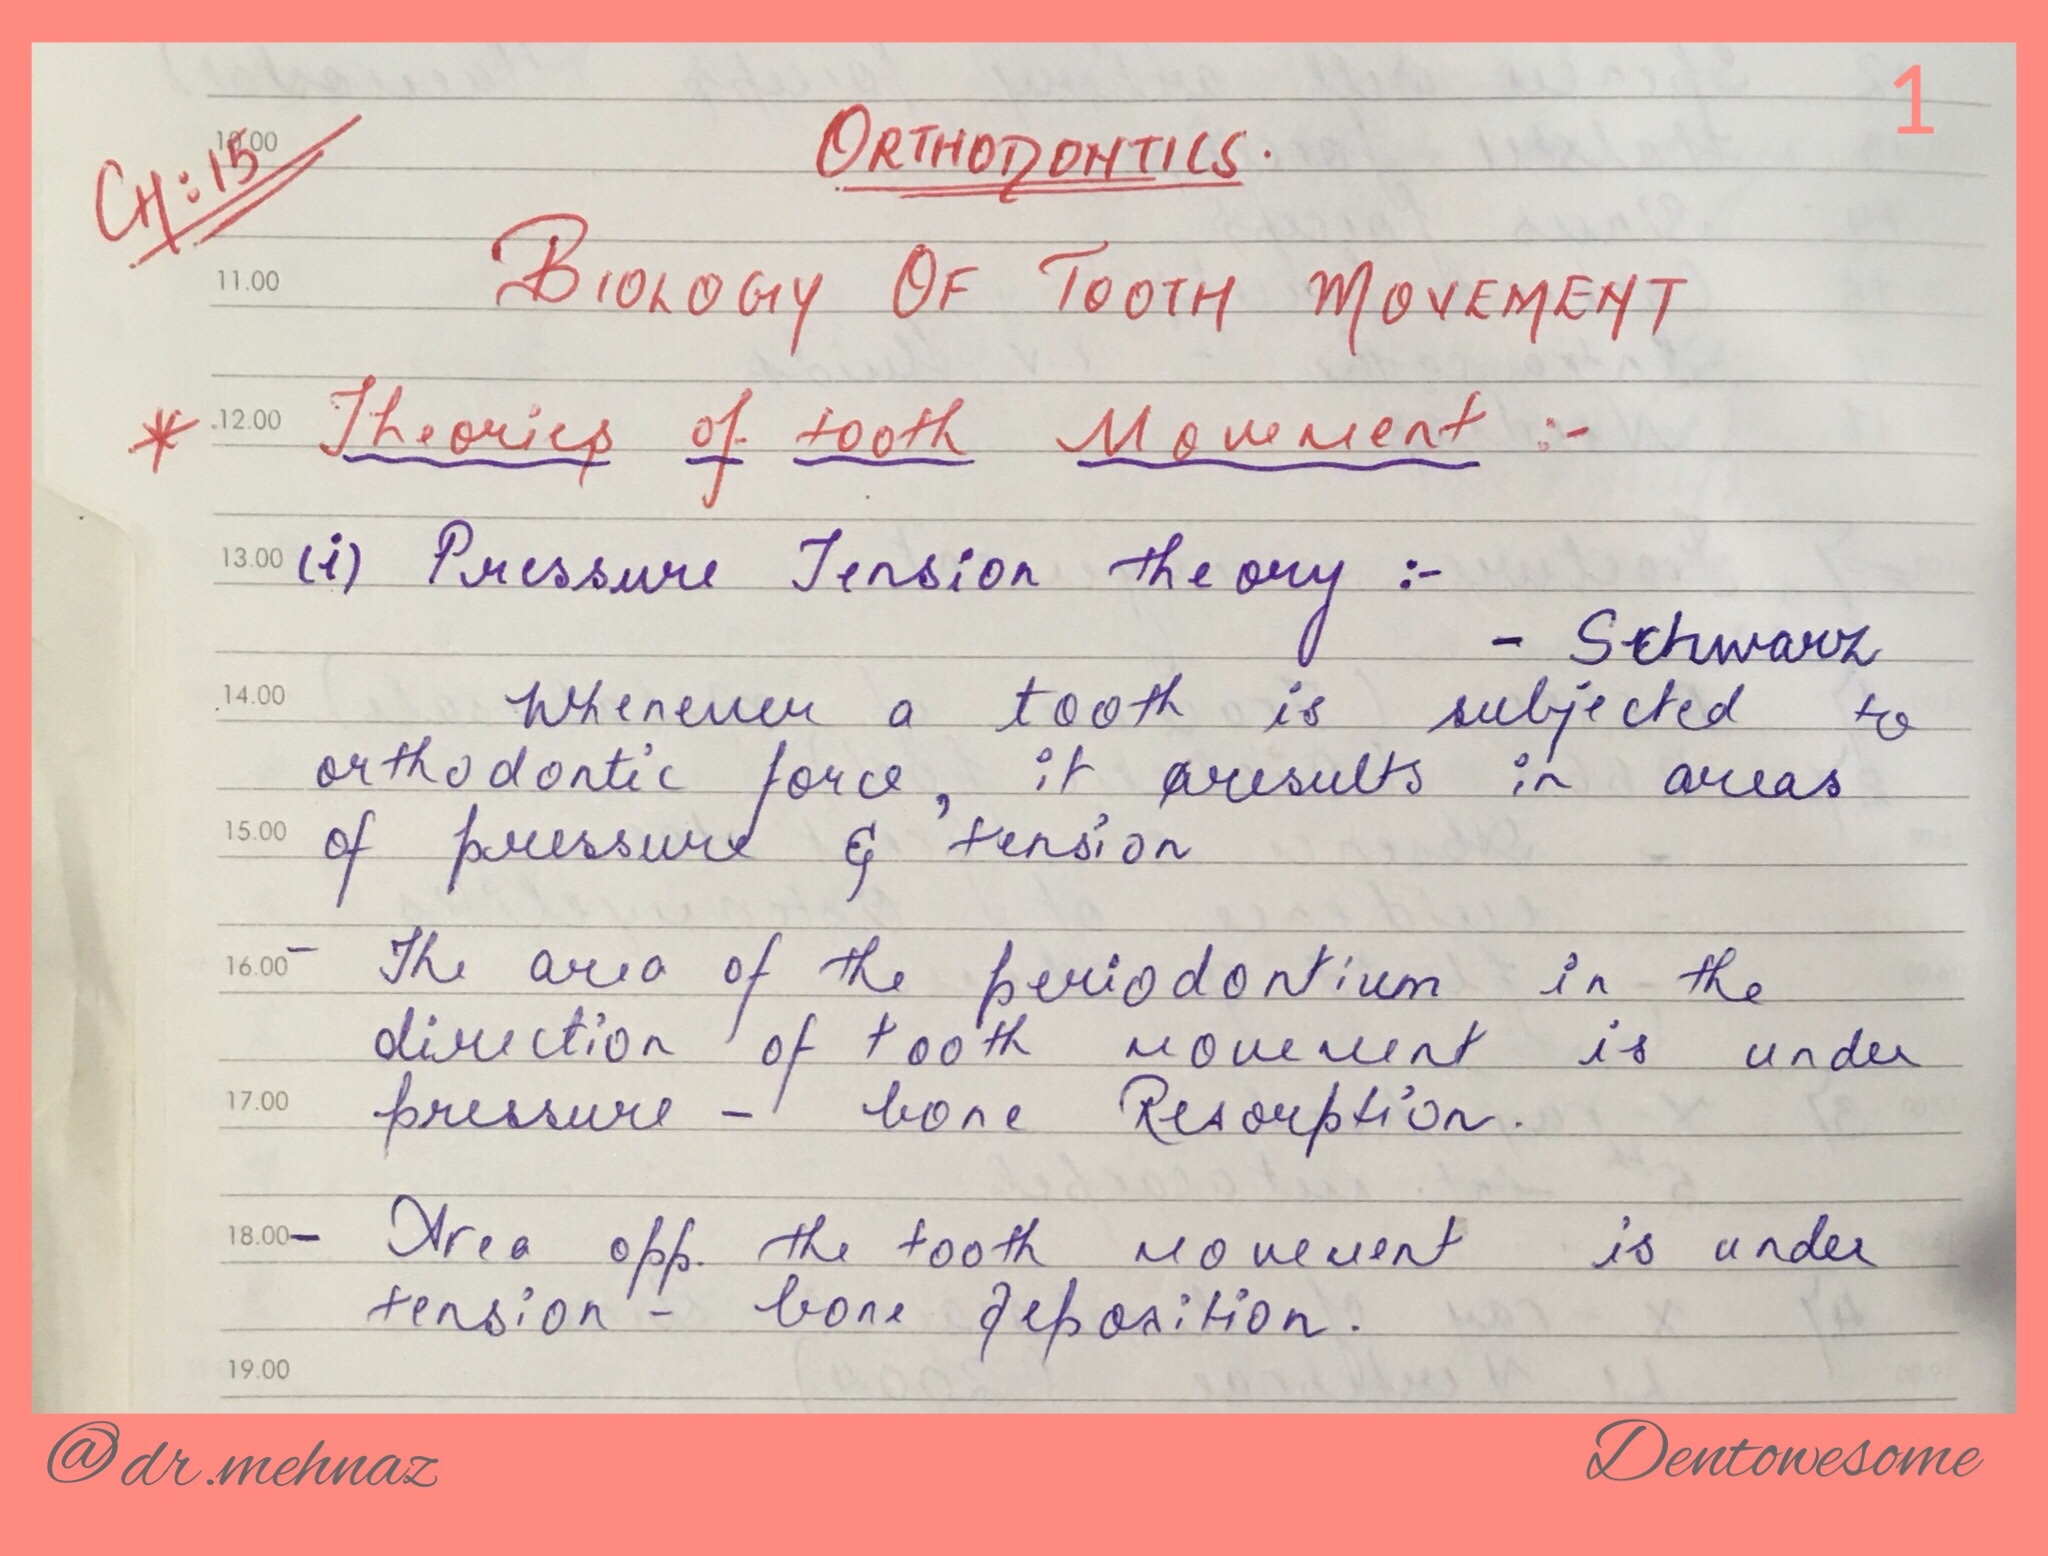 1
10.00
CH:15
ORTHODONTICS.
11.00 BIOLOGY OF TOOTH MOVEMENT
* 12.00 Theories of tooth Movement :-
13.00 (i) Pressure Tension theory :-
- Schwarz
14.00 Whenever a tooth is subjected to
orthodontic force, it results in areas
15.00 of pressure & tension
16.00 - The area of the periodontium in the
direction of tooth movement is under
17.00 pressure - bone Resorption.
18.00 - Area opp. the tooth movement is under
tension - bone deposition.
19.00
@dr.mehnaz
Dentowesome